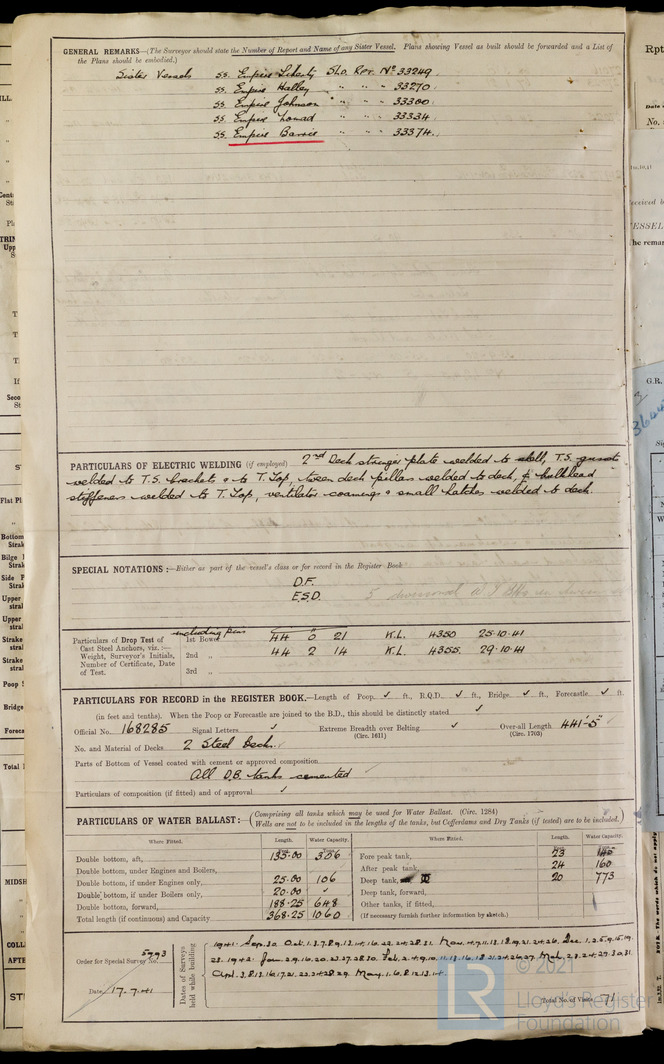 GENERAL REMARKS—(The Surveyor should state the Number of Report and Name of any Sister Vessel. Plans showing Vessel as built should be forwarded and a List of
the Plans should be embodied.)
Sister Vessels SS. Empire Liberty Sld. Rpt. No 33249.
SS. Empire Halley " " " 33270
SS. Empire Johnson " " " 33300
SS. Empire " " " 33334
SS. Empire Barrie " " " 33374.
PARTICULARS OF ELECTRIC WELDING (if employed) 2nd Deck stringer plate welded to shell, T.S. gusset
welded to T.S. brackets & to T. Top, tween deck pillars welded to deck, bulkhead
stiffeners welded to T. Top, ventilator coamings & small hatches welded to deck.
SPECIAL NOTATIONS:—Either as part of the vessel's class or for record in the Register Book
D.F.
E.S.D.
Particulars of Drop Test of
Cast Steel Anchors, viz.:—
Weight, Surveyor's Initials,
Number of Certificate, Date
of Test.
including pins
1st Bower 44 0 21 K.L. 4350 25.10.41
2nd " 44 2 14 K.L. 4355 29.10.41
3rd "
PARTICULARS FOR RECORD in the REGISTER BOOK.—Length of Poop ✓ ft., R.Q.D. ✓ ft., Bridge ✓ ft., Forecastle ✓ ft.
(in feet and tenths). When the Poop or Forecastle are joined to the B.D., this should be distinctly stated ✓
Official No. 168285 Signal Letters ✓ Extreme Breadth over Belting ✓ Over-all Length 441'-5"
(Circ. 1611) (Circ. 1703)
No. and Material of Decks 2 Steel Decks.
Parts of Bottom of Vessel coated with cement or approved composition
All D.B. tanks cemented
Particulars of composition (if fitted) and of approval ✓
PARTICULARS OF WATER BALLAST:— (Comprising all tanks which may be used for Water Ballast. (Circ. 1284)
Wells are not to be included in the lengths of the tanks, but Cofferdams and Dry Tanks (if tested) are to be included.)
Where Fitted. Length. Water Capacity. Where Fitted. Length. Water Capacity.
Double bottom, aft, 135.00 306 Fore peak tank, 23 145
Double bottom, under Engines and Boilers, After peak tank, 24 160
Double bottom, if under Engines only, 25.00 106 Deep tank, 20 773
Double bottom, if under Boilers only, 20.00 ✓ Deep tank, forward,
Double bottom, forward, 188.25 648 Other tanks, if fitted,
Total length (if continuous) and Capacity 368.25 1060 (If necessary furnish further information by sketch.)
Order for Special Survey No. 5793
Date 17.7.41
Dates of Surveys
held while building
1941. Sep. 30. Oct. 1.3.7.8.9.13.14.16.22.24.28.31. Nov. 4.7.11.13.18.19.21.24.26. Dec. 1.2.5.9.15.19.
23. 1942. Jan. 2.9.16.20.23.27.28.30. Feb. 2.4.9.10.11.13.16.18.21.24.26.27. Mch. 2.3.24.27.30.31.
Apl. 3.8.13.16.17.21.22.24.28.29. May. 1.6.8.12.13.14.
Total No. of Visits 71
© 2021
LR
Lloyd's Register
Foundation